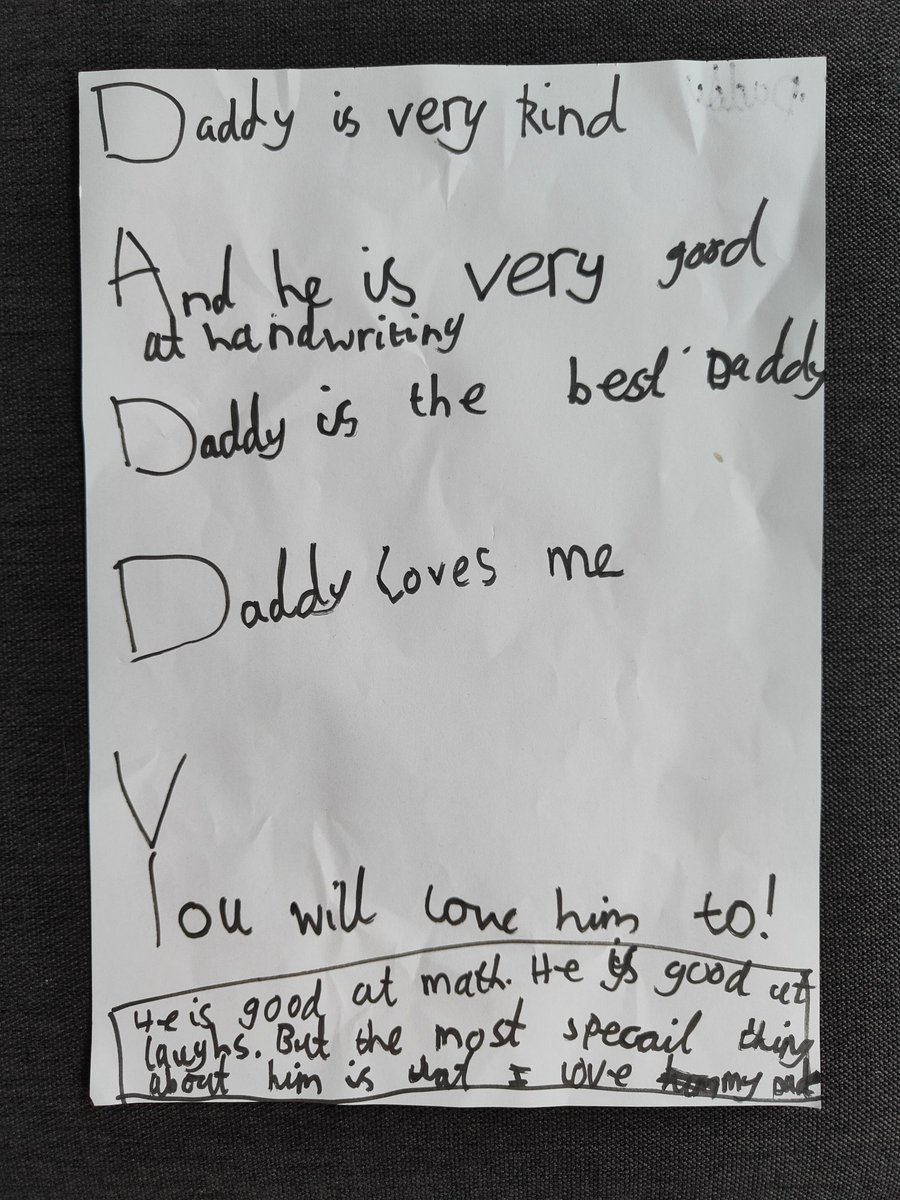 Daddy is very kind
And he is very good
at handwriting
Daddy is the best Daddy
Daddy loves me
You will love him to!
He is good at math. He is good at
laughs. But the most specail thing
about him is that I love my Dad